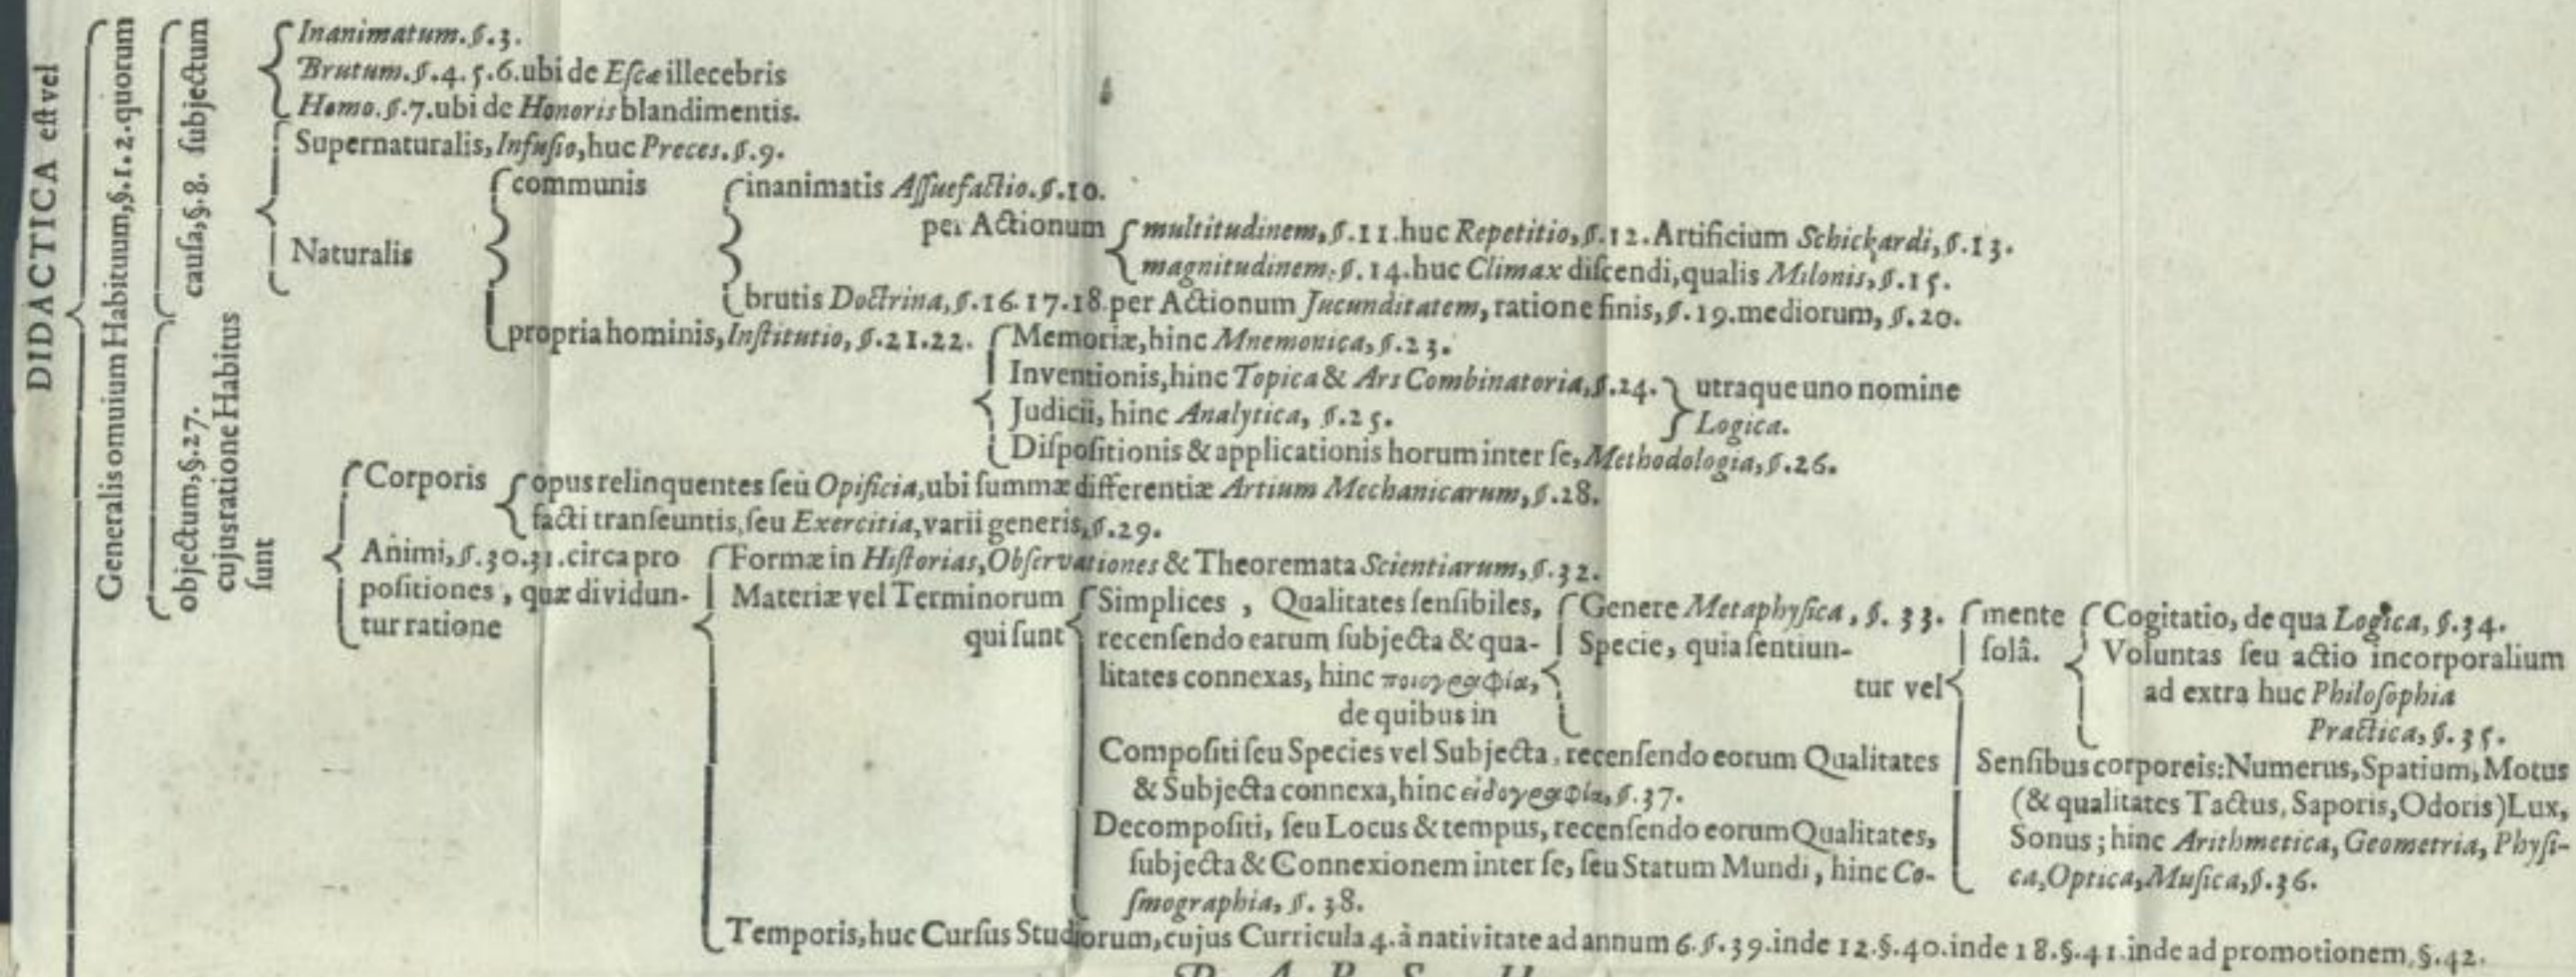 DIDACTICA eſt vel
Generalis omnium Habituum, §. 1. 2. quorum
cauſa, §. 8. ſubjectum
Inanimatum. §. 3.
Brutum. §. 4. 5. 6. ubi de Eſcæ illecebris
Homo. §. 7. ubi de Honoris blandimentis.
Supernaturalis, Infuſio, huc Preces. §. 9.
Naturalis
communis
inanimatis Aſſuefactio. §. 10.
per Actionum
multitudinem, §. 11. huc Repetitio, §. 12. Artificium Schickardi, §. 13.
magnitudinem. §. 14. huc Climax diſcendi, qualis Milonis, §. 15.
brutis Doctrina, §. 16. 17. 18. per Actionum Jucunditatem, ratione finis, §. 19. mediorum, §. 20.
propria hominis, Inſtitutio, §. 21. 22.
Memoriæ, hinc Mnemonica, §. 23.
Inventionis, hinc Topica & Ars Combinatoria, §. 24.
Judicii, hinc Analytica, §. 25.
utraque uno nomine
Logica.
Diſpoſitionis & applicationis horum inter ſe, Methodologia, §. 26.
objectum, §. 27.
cujus ratione Habitus
ſunt
Corporis
opus relinquentes ſeu Opificia, ubi ſummæ differentiæ Artium Mechanicarum, §. 28.
facti tranſeuntis, ſeu Exercitia, varii generis, §. 29.
Animi, §. 30. 31. circa pro
poſitiones, quæ dividun-
tur ratione
Formæ in Hiſtorias, Obſervationes & Theoremata Scientiarum, §. 32.
Materiæ vel Terminorum
qui ſunt
Simplices, Qualitates ſenſibiles,
recenſendo earum ſubjecta & qua-
litates connexas, hinc ποιογραφία,
de quibus in
Genere Metaphyſica, §. 33.
Specie, quia ſentiun-
tur vel
mente
ſolâ.
Cogitatio, de qua Logica, §. 34.
Voluntas ſeu actio incorporalium
ad extra huc Philoſophia
Practica, §. 35.
Senſibus corporeis: Numerus, Spatium, Motus
(& qualitates Tactus, Saporis, Odoris) Lux,
Sonus; hinc Arithmetica, Geometria, Phyſi-
ca, Optica, Muſica, §. 36.
Compoſiti ſeu Species vel Subjecta, recenſendo eorum Qualitates
& Subjecta connexa, hinc εἰδογραφία, §. 37.
Decompoſiti, ſeu Locus & tempus, recenſendo eorum Qualitates,
ſubjecta & Connexionem inter ſe, ſeu Statum Mundi, hinc Co-
ſmographia, §. 38.
Temporis, huc Curſus Studiorum, cujus Curricula 4. à nativitate ad annum 6. §. 39. inde 12. §. 40. inde 18. §. 41. inde ad promotionem, §. 42.